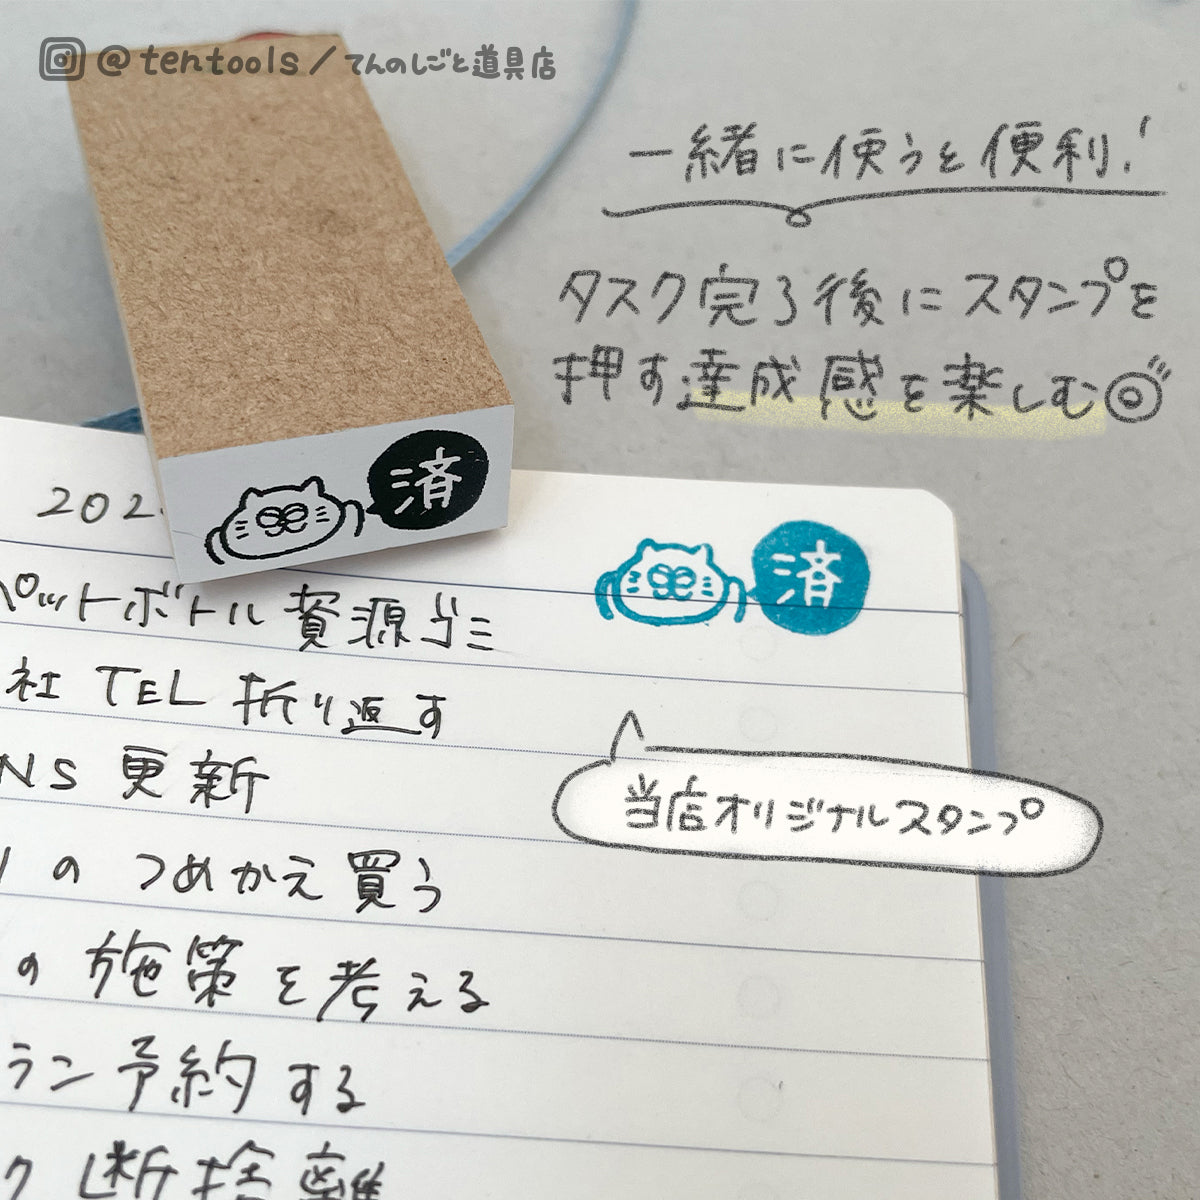 @tentools/てんのしごと道具店
一緒に使うと便利!
タスク完了後にスタンプを
押す達成感を楽しむ◎
済
済
202
ペットボトル資源ゴミ
社TEL折り返す
NS更新
のつめかえ買う
の施策を考える
ラン予約する
ク断捨離
当店オリジナルスタンプ